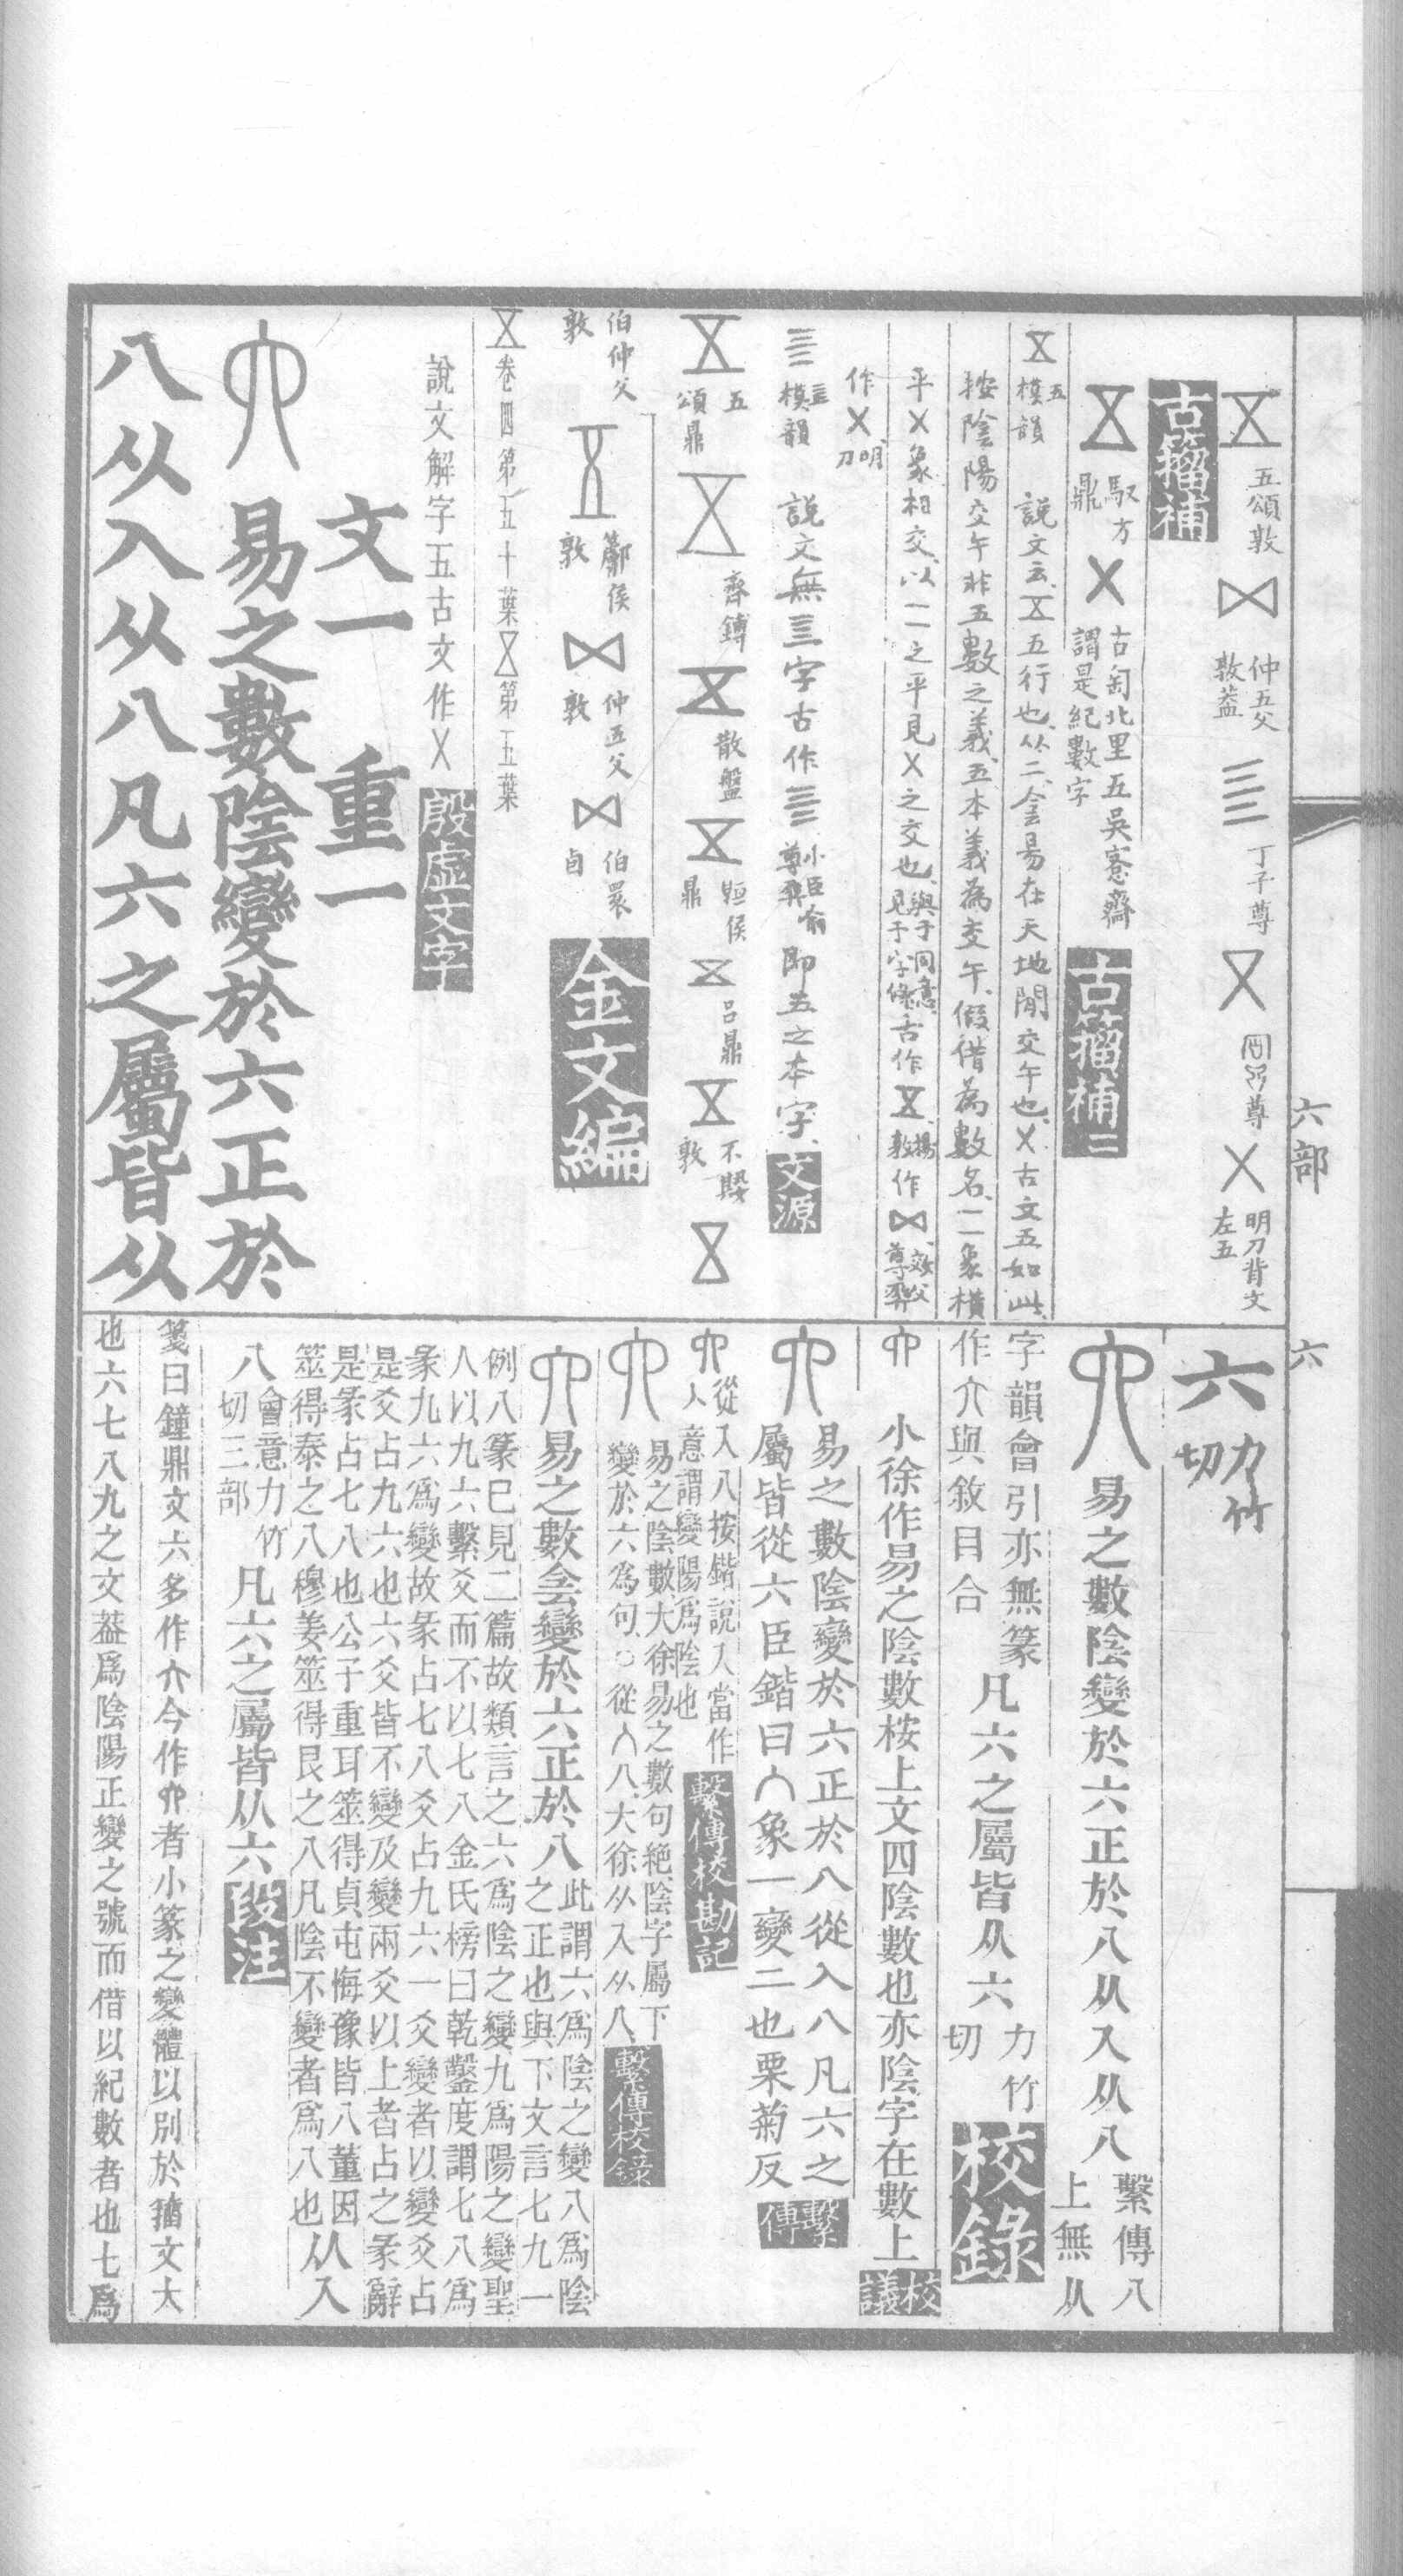 六部 六
五頌敦 仲五父敦蓋 丁子尊 尊 明刀背文左五
古籀補
馭方鼎 古匋北里五吳愙齋謂是紀數字 古籀補二
五模韻 說文云五行也从二侌昜在天地閒交午也㐅古文五如此
按陰陽交午非五數之義五本義為交午假借為數名二象橫
平㐅象相交以二之平見㐅之交也與于同意見于字條古作 揚敦作 效父尊彝
作㐅明刀
亖模韻 說文無亖字古作 小臣俞尊彝即五之本字文源
五頌鼎 齊鎛 散盤 侯鼎 呂鼎 不敦
伯仲父敦 侯敦 仲五父敦 伯睘卣 金文編
卷四第五十葉 第五葉
說文解字五古文作㐅殷虛文字
文一 重一
易之數陰變於六正於
八从入从八凡六之屬皆从
六力竹切
易之數陰變於六正於八从入从八繫傳八上無从
字韻會引亦無篆作與敘目合凡六之屬皆从六力竹切校錄
小徐作易之陰數桉上文四陰數也亦陰字在數上校議
易之數陰變於六正於八從入八凡六之
屬皆從六臣鍇曰入象一變二也栗菊反繫傳
從入八按鍇說入當作人意謂變陽爲陰也繫傳校勘記
易之陰數大徐易之數句絶陰字屬下
變於六爲句○從入八大徐从入从八繫傳校錄
易之數侌變於六正於八此謂六爲陰之變八爲陰之正也與下文言七九一
例八篆已見二篇故類言之六爲陰之變九爲陽之變聖
人以九六繫爻而不以七八金氏榜曰乾鑿度謂七八爲
彖九六爲變故彖占七八爻占九六一爻變者以變爻占
是爻占九六也六爻皆不變及變兩爻以上者占之彖辭
是彖占七八也公子重耳筮得貞屯悔豫皆八董因
筮得泰之八穆姜筮得艮之八凡陰不變者爲八也从入
八會意力竹切三部凡六之屬皆从六段注
箋曰鐘鼎文六多作今作者小篆之變體以別於籀文大
也六七八九之文葢爲陰陽正變之號而借以紀數者也七爲